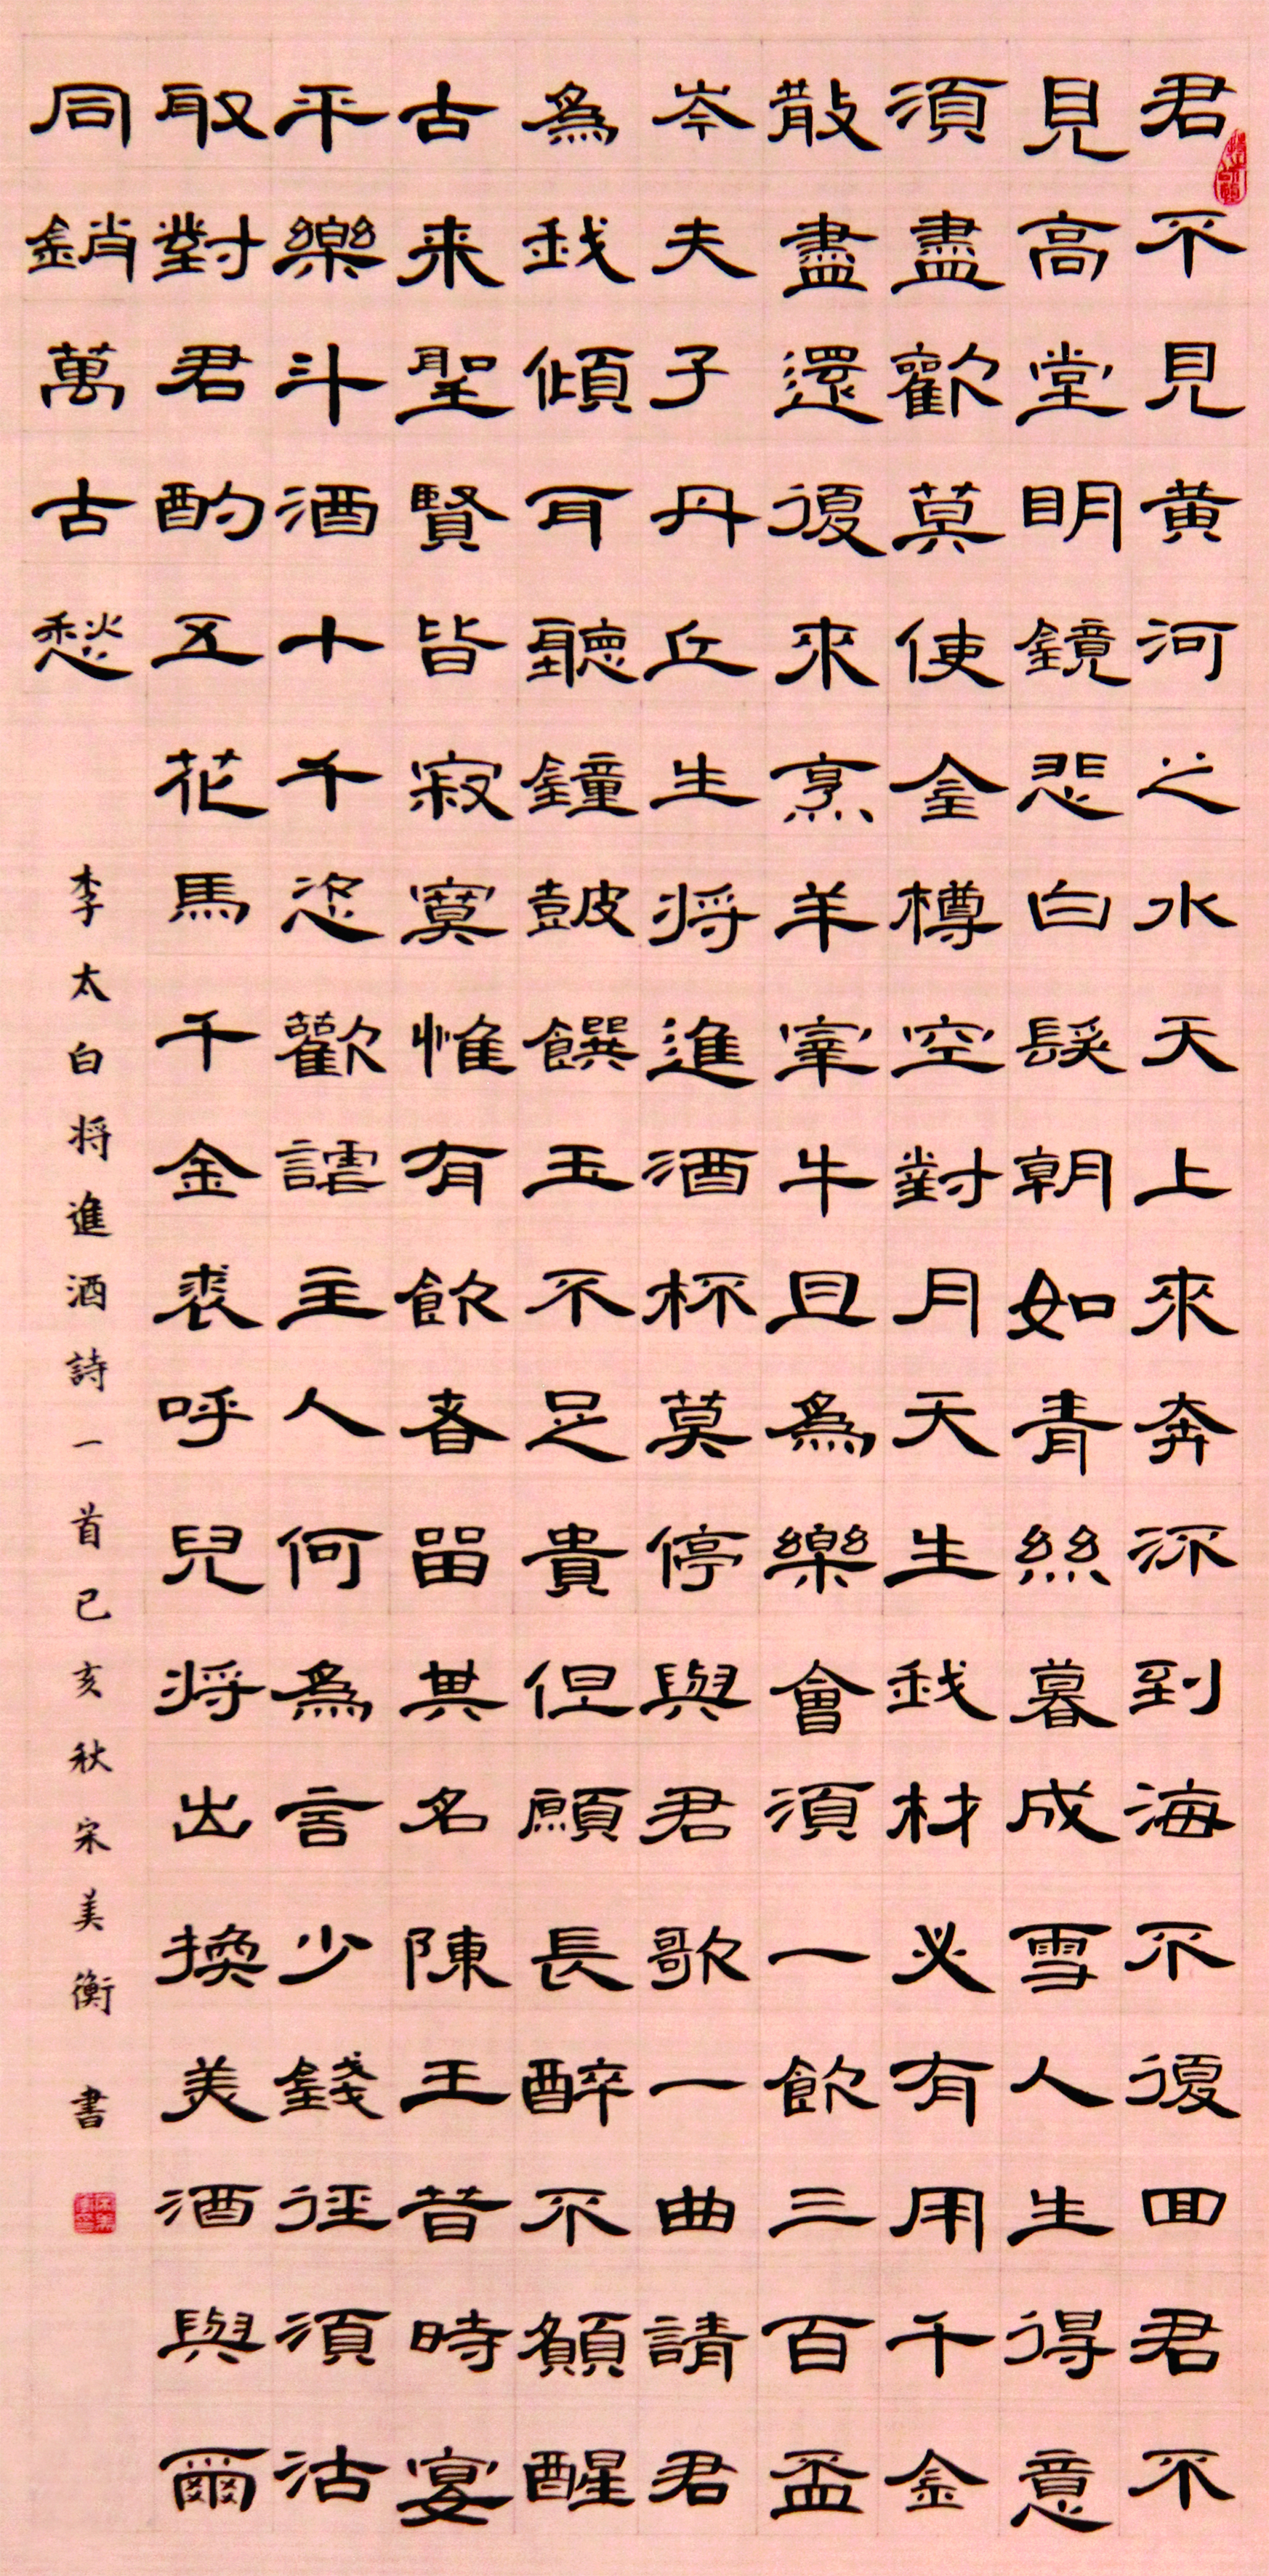 君不見黄河之水天上來奔流到海不復回君不
見高堂明鏡悲白髮朝如青絲暮成雪人生得意
須盡歡莫使金樽空對月天生我材必有用千金
散盡還復來烹羊宰牛且為樂會須一飲三百盃
岑夫子丹丘生將進酒杯莫停與君歌一曲請君
為我傾耳聽鐘鼓饌玉不足貴但願長醉不願醒
古来聖賢皆寂寞惟有飲者留其名陳王昔時宴
平樂斗酒十千恣歡謔主人何為言少錢徑須沽
取對君酌五花馬千金裘呼兒將出換美酒與爾
同銷萬古愁
李太白将進酒詩一首己亥秋宋美衡書